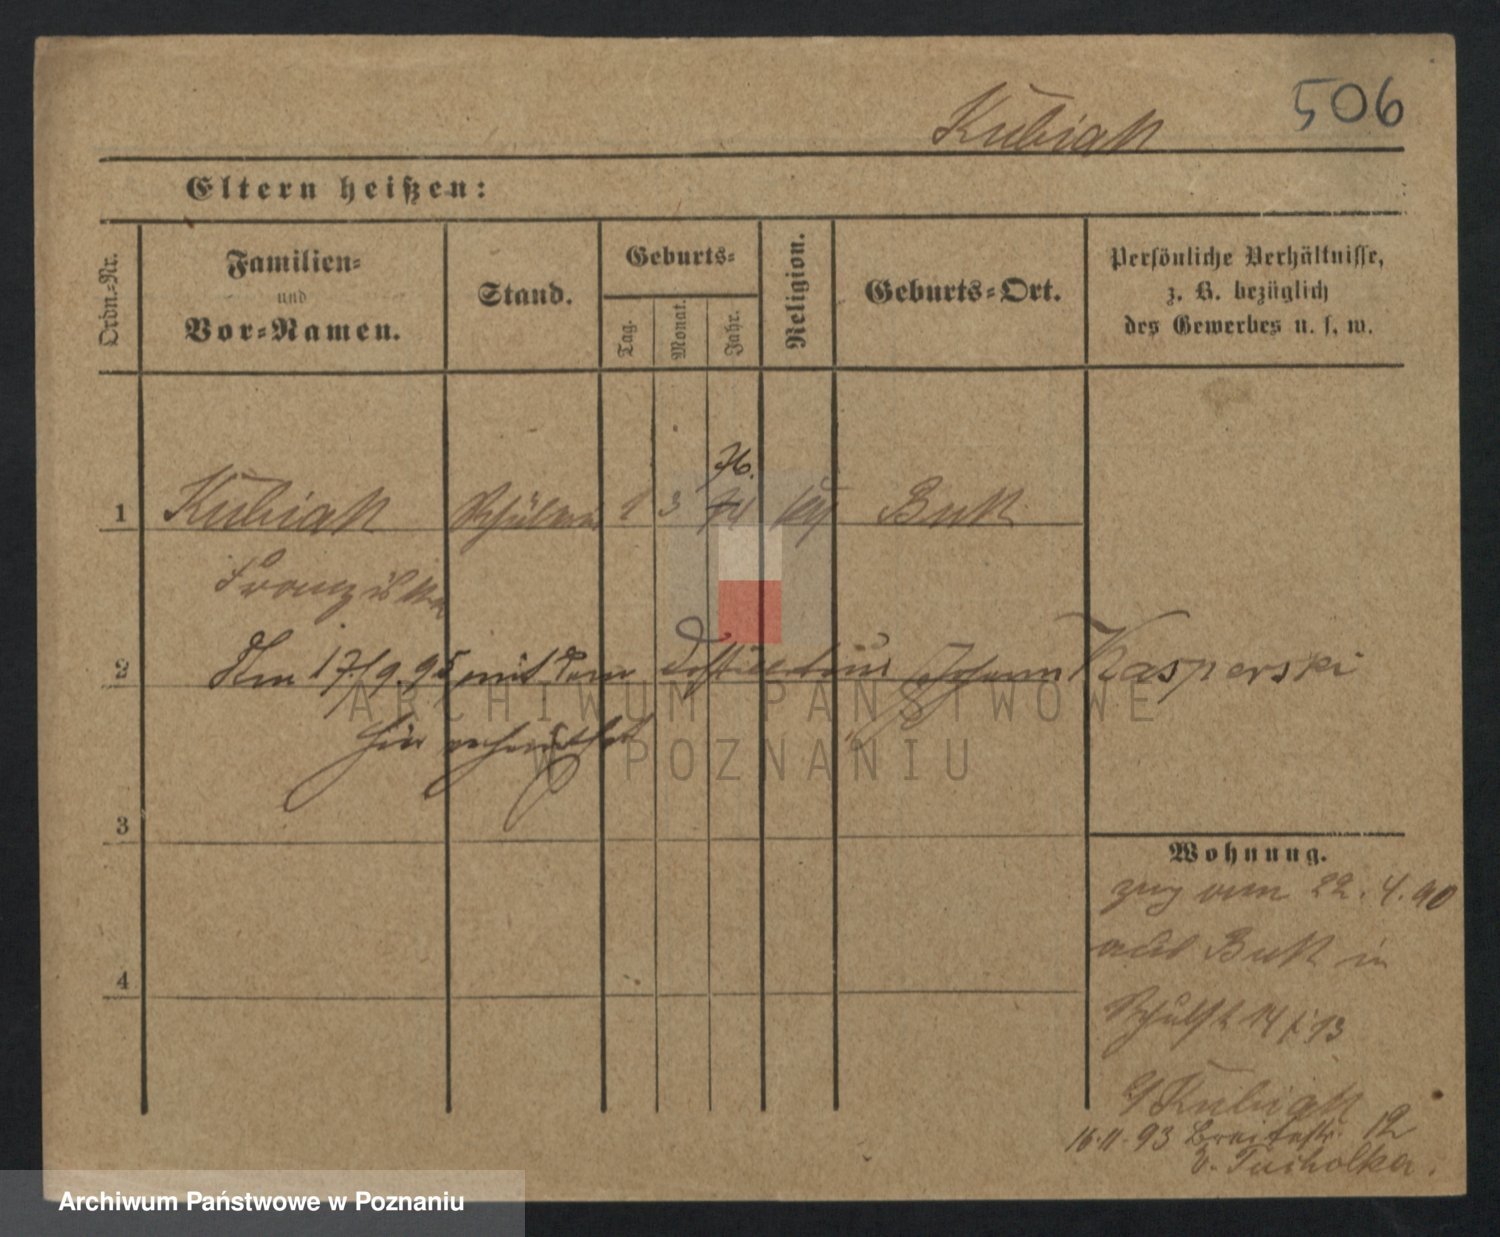 506
Kubiak
Eltern heißen:
Ordn.-Nr.
Familien-
und
Vor-Namen.
Stand.
Geburts-
Tag.
Monat.
Jahr.
Religion.
Geburts-Ort.
Persönliche Verhältnisse,
z. B. bezüglich
des Gewerbes u. s. w.
76.
1 Kubiak 1 3 74 Buk
Franziska
2 Am 17/9.95 mit dem Johann Kasperski
hier
ARCHIWUM PAŃSTWOWE
W POZNANIU
3
Wohnung.
zug vom 22.4.90
aus Buk in
4
Schulst 14 / 13
Kubiak
16.11.93 Breitestr. 12
v. Tucholka.
Archiwum Państwowe w Poznaniu